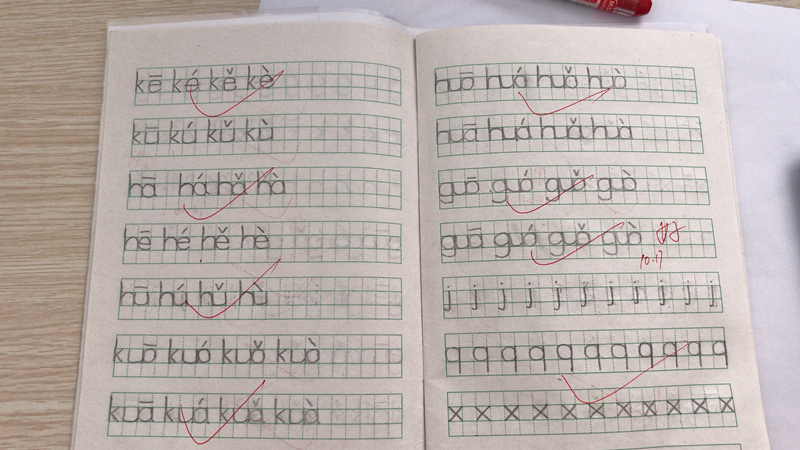 kē ké kě kè
kū kú kǔ kù
hā há hǎ hà
hē hé hě hè
hū hú hǔ hù
kuō kuó kuǒ kuò
kuā kuá kuǎ kuà
huō huá huǒ huò
huā huá huǎ huà
guō guó guǒ guò
guā guá guǎ guà 好
10.17
j j j j j j j j j j j
q q q q q q q q q q q
x x x x x x x x x x x